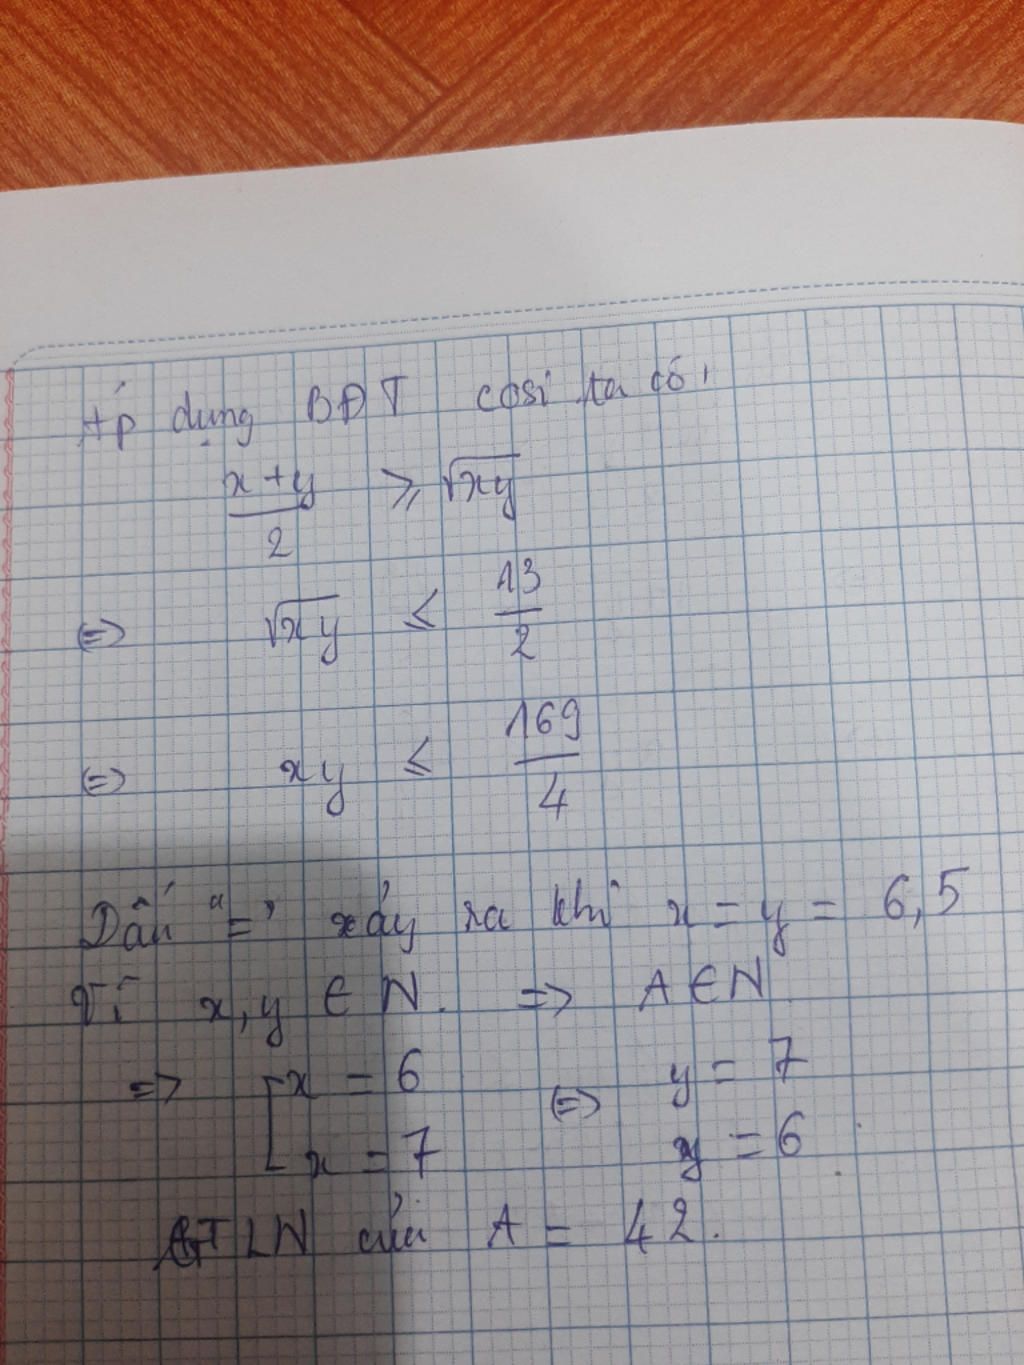 Áp dụng BĐT cosi ta có,
x+y/2 ⩾ √xy
(=) √xy ≤ 13/2
(=) xy ≤ 169/4
Dấu "=" xảy ra khi x = y = 6,5
Vì x, y ∈ N. => A ∈ N
=> [x = 6 (=) y = 7
x = 7 y = 6
GTLN của A = 42.